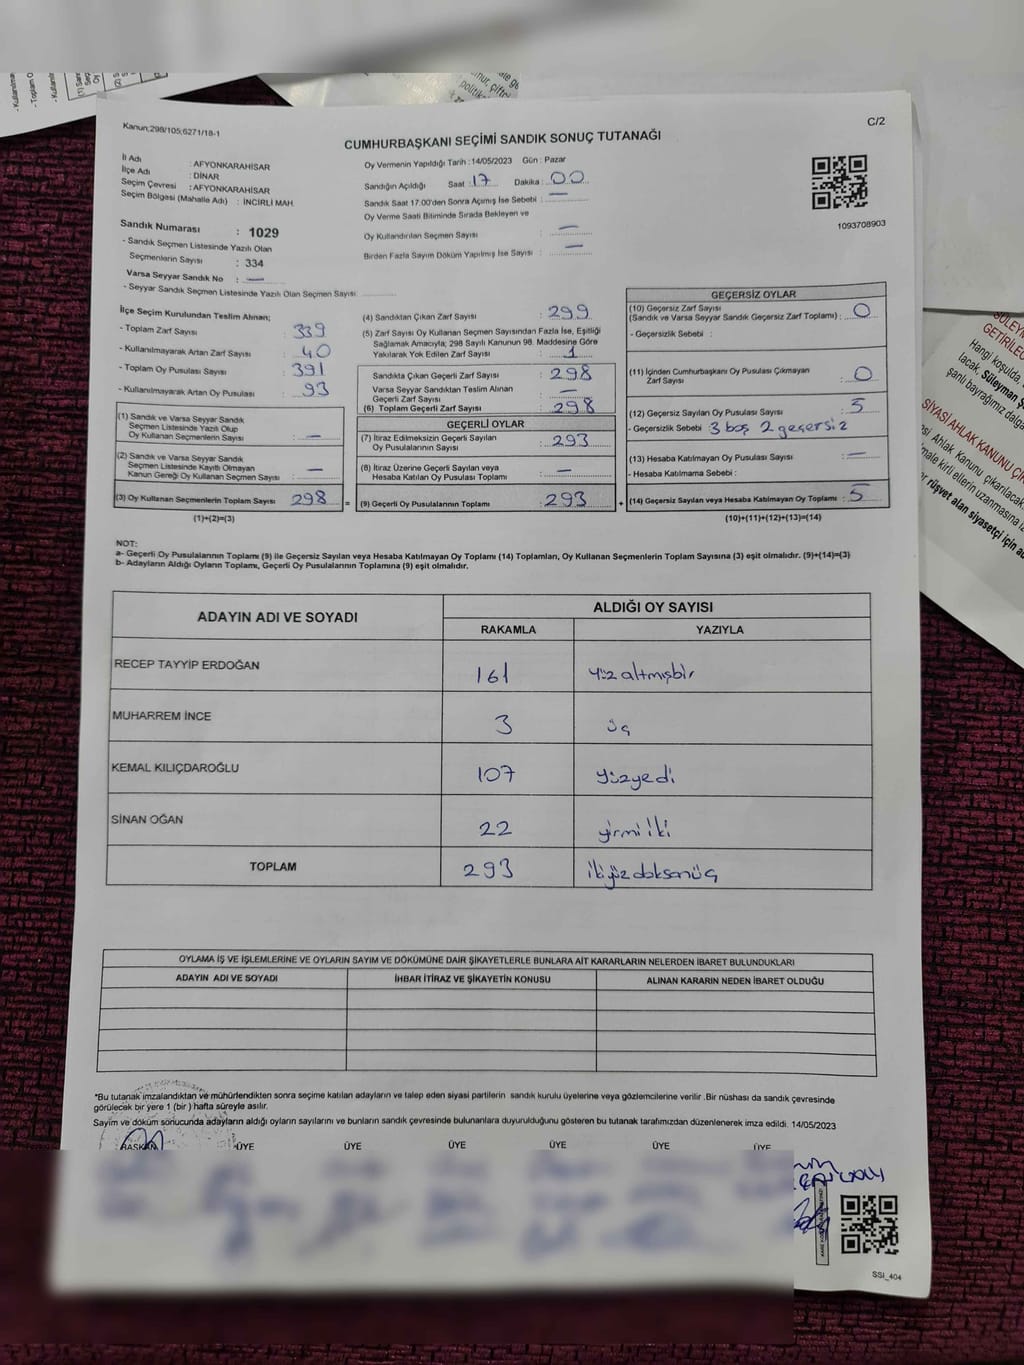 Kanun;298/105;6271/18-1
C/2
CUMHURBAŞKANI SEÇİMİ SANDIK SONUÇ TUTANAĞI
İl Adı : AFYONKARAHİSAR
İlçe Adı : DİNAR
Seçim Çevresi : AFYONKARAHİSAR
Seçim Bölgesi (Mahalle Adı) : İNCİRLİ MAH.
Oy Vermenin Yapıldığı Tarih : 14/05/2023 Gün : Pazar
Sandığın Açıldığı Saat : 17 Dakika : 00
Sandık Saat 17:00'den Sonra Açımış İse Sebebi : —
Oy Verme Saati Bitiminde Sırada Bekleyen ve
Oy Kullandırılan Seçmen Sayısı : —
Birden Fazla Sayım Döküm Yapılmış İse Sayısı : —
1093708903
Sandık Numarası : 1029
- Sandık Seçmen Listesinde Yazılı Olan
Seçmenlerin Sayısı : 334
Varsa Seyyar Sandık No : —
- Seyyar Sandık Seçmen Listesinde Yazılı Olan Seçmen Sayısı :
İlçe Seçim Kurulundan Teslim Alınan;
- Toplam Zarf Sayısı : 339
- Kullanılmayarak Artan Zarf Sayısı : 40
- Toplam Oy Pusulası Sayısı : 391
- Kullanılmayarak Artan Oy Pusulası : 93
(1) Sandık ve Varsa Seyyar Sandık
Seçmen Listesinde Yazılı Olup
Oy Kullanan Seçmenlerin Sayısı : —
(2) Sandık ve Varsa Seyyar Sandık
Seçmen Listesinde Kayıtlı Olmayan
Kanun Gereği Oy Kullanan Seçmen Sayısı : —
(3) Oy Kullanan Seçmenlerin Toplam Sayısı : 298 =
(1)+(2)=(3)
(4) Sandıktan Çıkan Zarf Sayısı : 299
(5) Zarf Sayısı Oy Kullanan Seçmen Sayısından Fazla İse, Eşitliği
Sağlamak Amacıyla; 298 Sayılı Kanunun 98. Maddesine Göre
Yakılarak Yok Edilen Zarf Sayısı : 1
Sandıkta Çıkan Geçerli Zarf Sayısı : 298
Varsa Seyyar Sandıktan Teslim Alınan
Geçerli Zarf Sayısı : —
(6) Toplam Geçerli Zarf Sayısı : 298
GEÇERLİ OYLAR
(7) İtiraz Edilmeksizin Geçerli Sayılan
Oy Pusulalarının Sayısı : 293
(8) İtiraz Üzerine Geçerli Sayılan veya
Hesaba Katılan Oy Pusulaları Toplamı : —
(9) Geçerli Oy Pusulalarının Toplamı : 293 +
GEÇERSİZ OYLAR
(10) Geçersiz Zarf Sayısı
(Sandık ve Varsa Seyyar Sandık Geçersiz Zarf Toplamı) : 0
- Geçersizlik Sebebi :
(11) İçinden Cumhurbaşkanı Oy Pusulası Çıkmayan
Zarf Sayısı : 0
(12) Geçersiz Sayılan Oy Pusulası Sayısı : 5
- Geçersizlik Sebebi : 3 boş 2 geçersiz
(13) Hesaba Katılmayan Oy Pusulası Sayısı : —
- Hesaba Katılmama Sebebi :
(14) Geçersiz Sayılan veya Hesaba Katılmayan Oy Toplamı : 5
(10)+(11)+(12)+(13)=(14)
NOT:
a- Geçerli Oy Pusulalarının Toplamı (9) ile Geçersiz Sayılan veya Hesaba Katılmayan Oy Toplamı (14) Toplamları, Oy Kullanan Seçmenlerin Toplam Sayısına (3) eşit olmalıdır. (9)+(14)=(3)
b- Adayların Aldığı Oyların Toplamı, Geçerli Oy Pusulalarının Toplamına (9) eşit olmalıdır.
ADAYIN ADI VE SOYADI ALDIĞI OY SAYISI
RAKAMLA YAZIYLA
RECEP TAYYİP ERDOĞAN 161 yüz altmışbir
MUHARREM İNCE 3 üç
KEMAL KILIÇDAROĞLU 107 yüzyedi
SİNAN OĞAN 22 yirmi iki
TOPLAM 293 ikiyüzdoksanüç
OYLAMA İŞ VE İŞLEMLERİNE VE OYLARIN SAYIM VE DÖKÜMÜNE DAİR ŞİKAYETLERLE BUNLARA AİT KARARLARIN NELERDEN İBARET BULUNDUKLARI
ADAYIN ADI VE SOYADI İHBAR İTİRAZ VE ŞİKAYETİN KONUSU ALINAN KARARIN NEDEN İBARET OLDUĞU
*Bu tutanak imzalandıktan ve mühürlendikten sonra seçime katılan adayların ve talep eden siyasi partilerin sandık kurulu üyelerine veya gözlemcilerine verilir .Bir nüshası da sandık çevresinde
görülecek bir yere 1 (bir ) hafta süreyle asılır.
Sayım ve döküm sonucunda adayların aldığı oyların sayılarını ve bunların sandık çevresinde bulunanlara duyurulduğunu gösteren bu tutanak tarafımızdan düzenlenerek imza edildi. 14/05/2023
BAŞKAN ÜYE ÜYE ÜYE ÜYE ÜYE ÜYE
SSI_404
GETİRİLEC
Hangi koşulda,
lacak, Süleyman Ş
şanlı bayrağımız dalga
SİYASİ AHLAK KANUNU Ç
Ahlak Kanunu çıkarılacak
kirli ellerin uzanmasına iz
rüşvet alan siyasetçi için